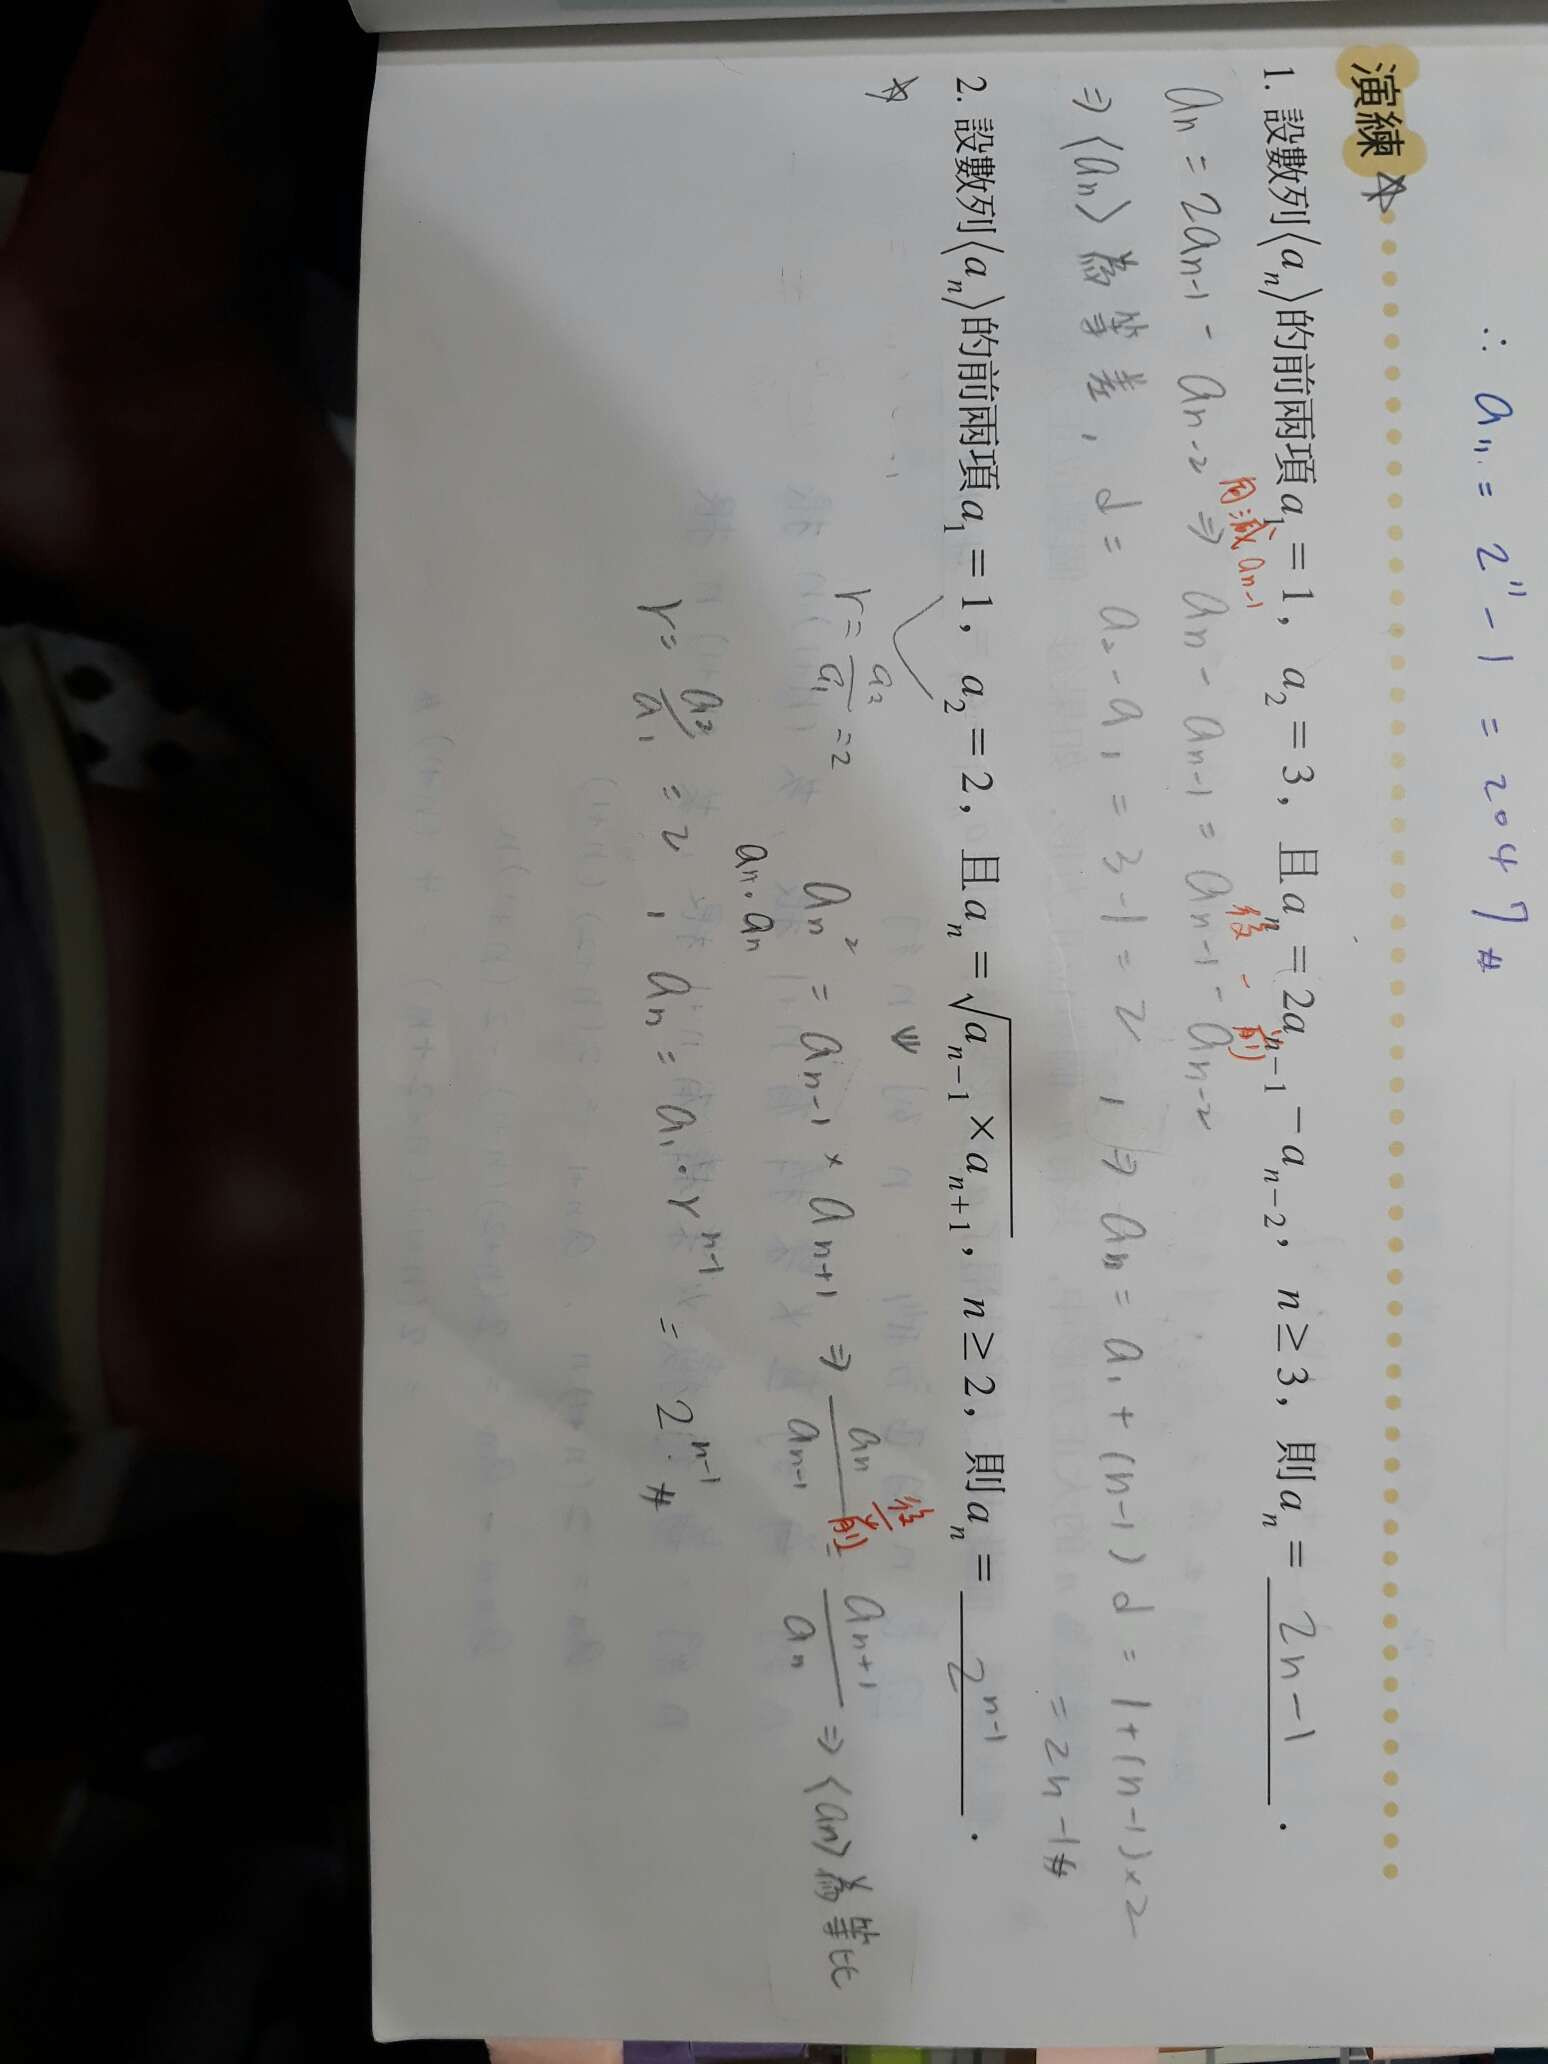 ∴ a₁₁ = 2¹¹ - 1 = 2047 #
演練 ☆
1. 設數列⟨aₙ⟩的前兩項a₁ = 1, a₂ = 3, 且aₙ = 2aₙ₋₁ − aₙ₋₂, n ≥ 3, 則aₙ = 2n−1 .
同減 aₙ₋₁
後 - 前
aₙ = 2aₙ₋₁ - aₙ₋₂ ⇒ aₙ - aₙ₋₁ = aₙ₋₁ - aₙ₋₂
⇒ ⟨aₙ⟩ 為等差, d = a₂ - a₁ = 3 - 1 = 2, ⇒ aₙ = a₁ + (n-1)d = 1 + (n-1)×2
= 2n - 1 #
2. 設數列⟨aₙ⟩的前兩項a₁ = 1, a₂ = 2, 且aₙ = √(aₙ₋₁ × aₙ₊₁), n ≥ 2, 則aₙ = 2ⁿ⁻¹ .
☆
r = a₂/a₁ = 2
後/前
aₙ² = aₙ₋₁ × aₙ₊₁ ⇒ aₙ/aₙ₋₁ = aₙ₊₁/aₙ ⇒ ⟨aₙ⟩ 為等比
aₙ · aₙ
r = a₂/a₁ = 2, aₙ = a₁ · rⁿ⁻¹ = 2ⁿ⁻¹ #